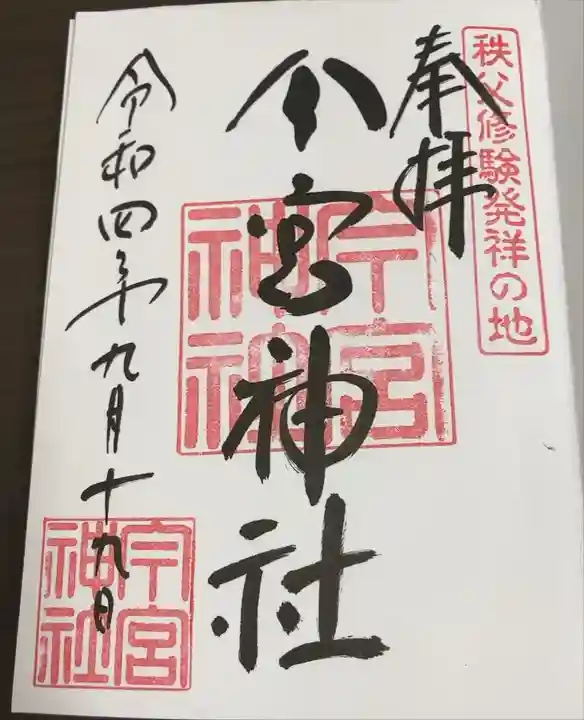 秩父修験発祥の地
奉拝
今宮神社
今宮
神社
令和四年九月十九日
今宮
神社